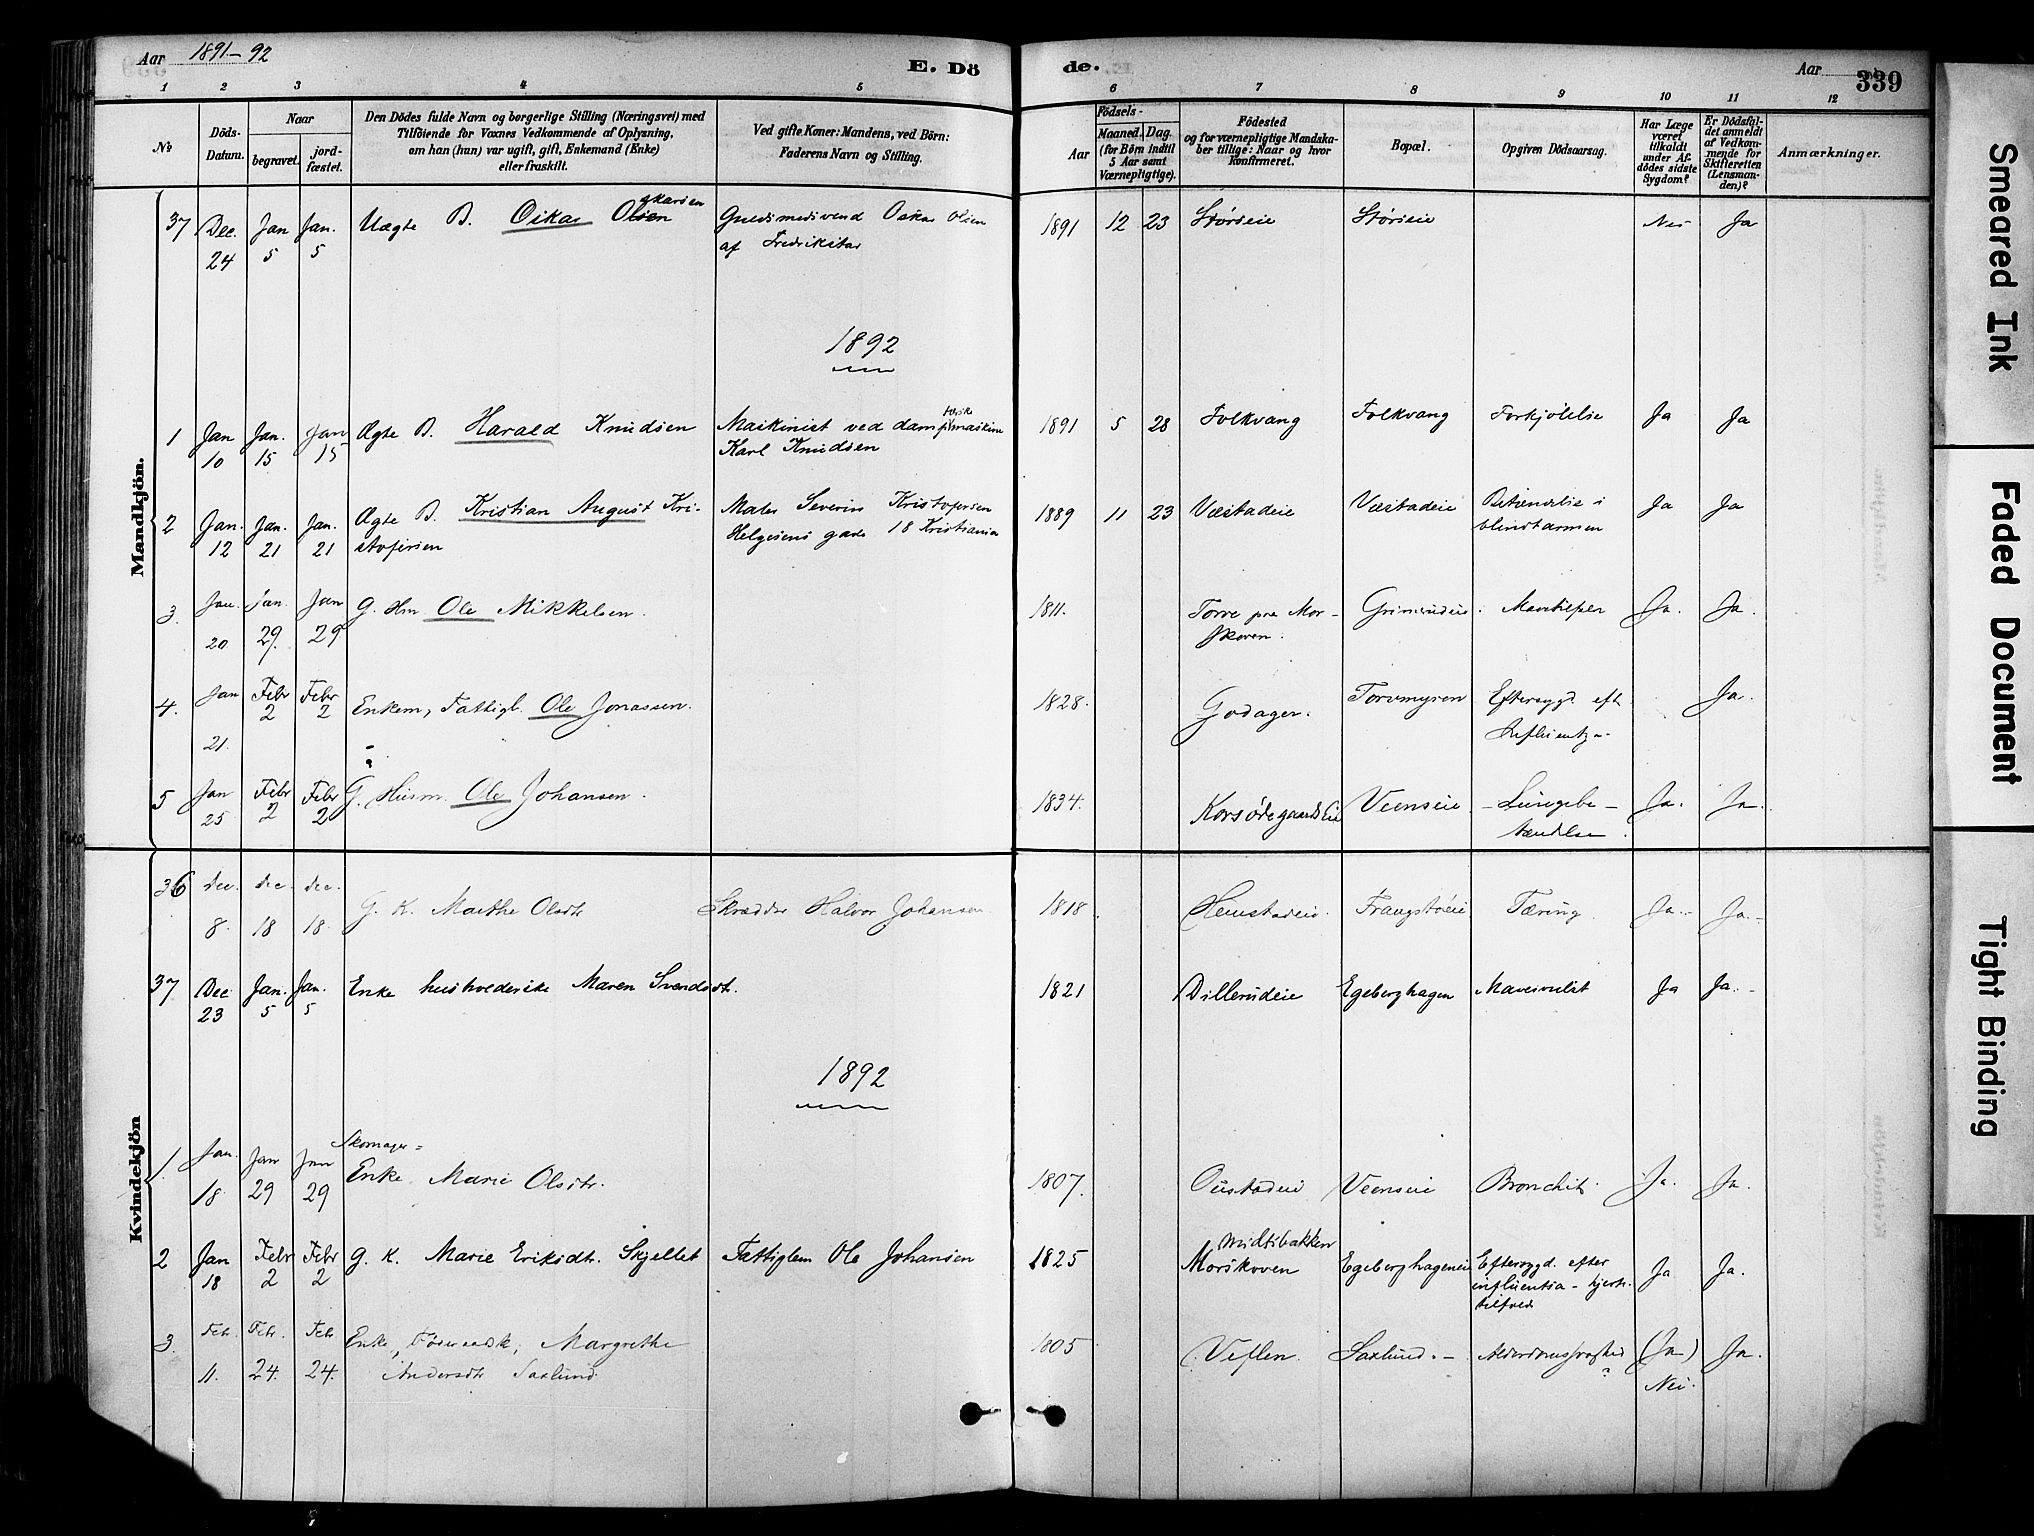 Aar 1891–92
E. Dö
de.
Aar
339
1 2 3 4 5 6 7 8 9 10 11 12
No
Döds-
Datum.
Naar
begravet.
jord-
fæstet.
Den Dödes fulde Navn og borgerlige Stilling (Næringsvei) med
Tilföiende for Voxnes Vedkommende af Oplysning,
om han (hun) var ugift, gift, Enkemand (Enke)
eller fraskilt.
Ved gifte Koner: Mandens, ved Börn:
Faderens Navn og Stilling.
Födsels-
Aar
Maaned. Dag.
(for Börn indtil
5 Aar samt
Værnepligtige).
Födested
og for værnepligtige Mandska-
ber tillige: Naar og hvor
Konfirmeret.
Bopæl.
Opgiven Dödsaarsag.
Har Læge
været
tilkaldt
under Af-
dödes sidste
Sygdom?
Er Dödsfal-
det anmeldt
af Vedkom-
mende for
Skifteretten
(Lensman-
den)?
Anmærkninger.
Mandkjön.
37 Dec. 24 Jan 5 Jan. 5 Uægte B. Oskar Olsen Guldsmedsvend Oskar Olsen 1891 12 23 Störseie Störseie Nei Ja
af Fredrikstad
1892
1 Jan 10 Jan. 15 Jan 15 Ægte B. Harald Knudsen Maskinist ved damptærskemaskine 1891 5 28 Folkvang Folkvang Forkjölelse Ja Ja
Karl Knudsen
2 Jan. 12 Jan. 21 Jan. 21 Ægte B. Kristian August Kri- Maler Severin Kristofersen 1889 11 23 Væstadeie Væstadeie Betændelse i Ja Ja
stofersen Helgesens gade 18 Kristiania blindtarmen
3. Jan. 20 Jan. 29. Jan 29 G. Hm Ole Mikkelsen. 1811. Torve pra Mor-
skoven. Grimsrudeie. Ja. Ja.
4. Jan 21. Febr 2 Febr 2 Enkem, Fattigl. Ole Jonassen. 1828. Godager. Torvmyren Eftersygd. eft Ja.
Influentza
5 Jan 25 Febr 2 Febr 2 G. Husm. Ole Johansen. 1834. Korsødegaards Eie Veenseie Lungebe- Ja. Ja.
tændelse.
Kvindekjön
36 Dec. 8. Dec. 18 Dec. 18. G. K. Marthe Olsdtr Skrædder Halvor Johansen 1818 Hemstadeie. Frangstøeie Tæring Ja. Ja.
37 Dec 23 Jan. 5 Jan. 5 Enke husholderske Maren Svendsdtr. 1821 Dillerudeie Egeberghagen Mavesvulst Ja Ja.
1892
1. Jan. 18. Jan 29 Jan 29 Skomager=
Enke Marie Olsdtr. 1807. Oustadeie Veenseie Bronchit. Ja. Ja.
2 Jan 18 Febr 2 Febr 2 G. K. Marie Eriksdtr. Skjellet Fattiglem Ole Johansen 1825 Midtsbakken
Morskoven Egeberghageneie Eftersygd. efter Ja Ja.
influentsa – hjerte-
tilfæld
3. Febr. 11. Febr. 24. Febr 24. Enke, Föderaadsk, Margrethe 1805 Veflen. Saxlund. Alderdomssvaghed (Ja) Ja.
Andersdtr Saxlund ? Nei.
Smeared Ink
Faded Document
Tight Binding